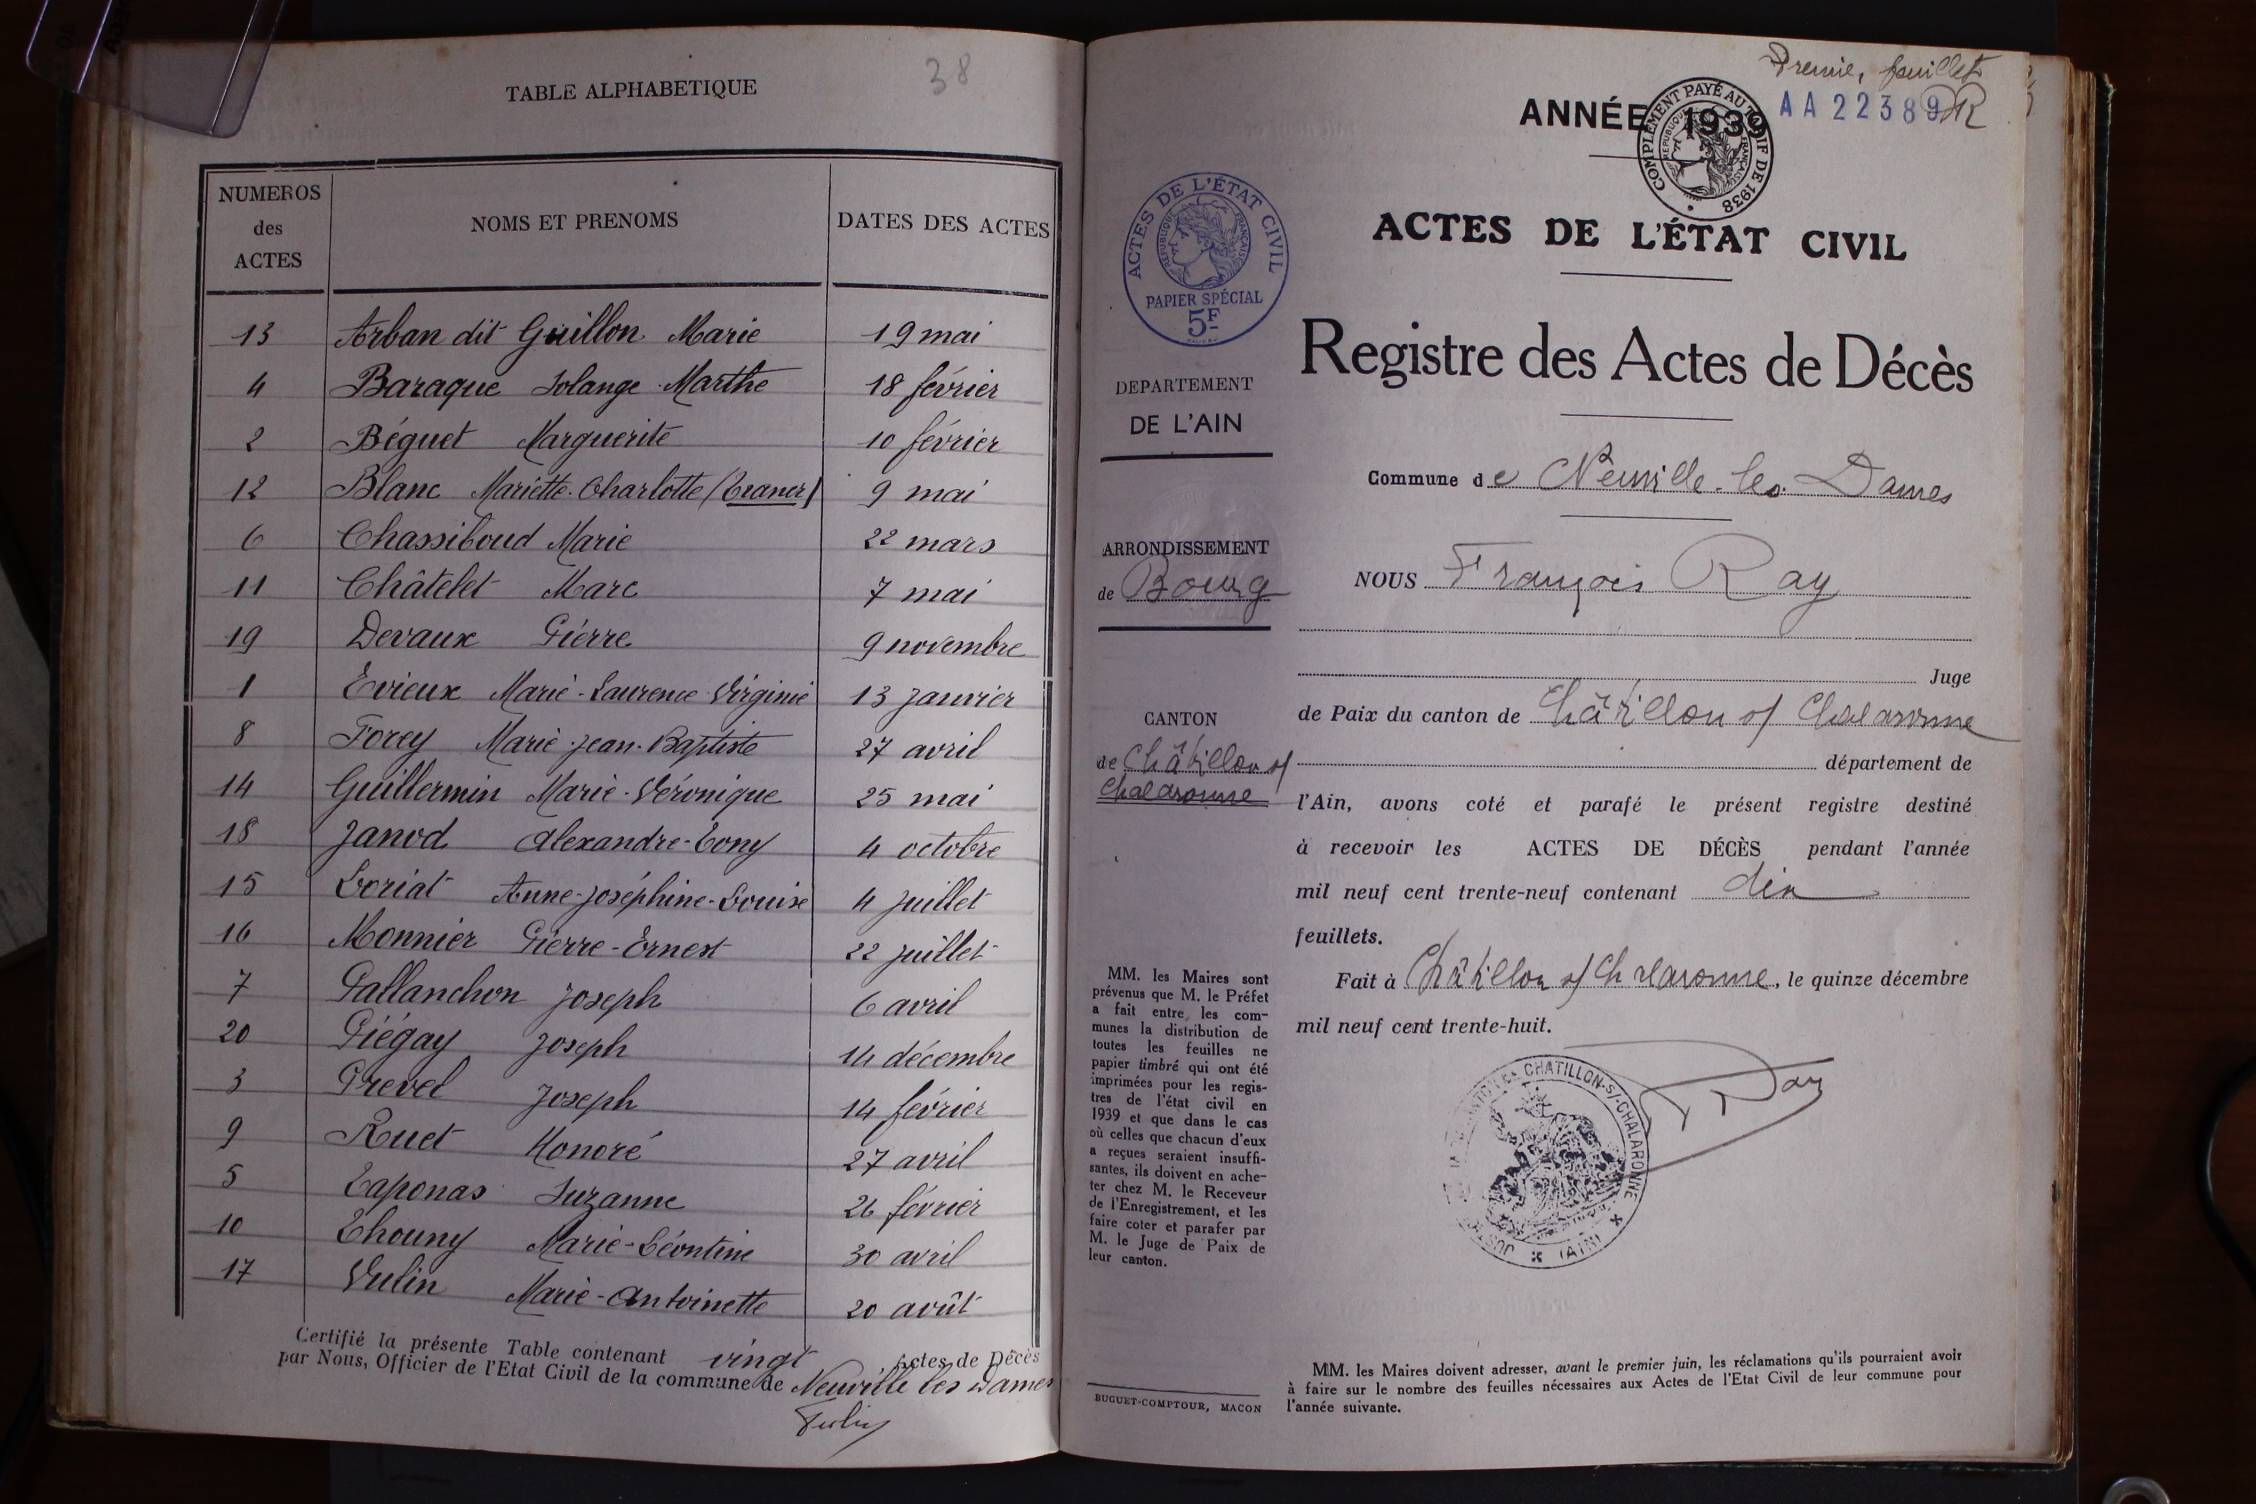 TABLE ALPHABETIQUE
38
NUMEROS des ACTES
NOMS ET PRENOMS
DATES DES ACTES
13 Arban dit Guillon Marie 19 mai
4 Baraque Solange Marthe 18 février
2 Béguet Marguerite 10 février
12 Blanc Mariette-Charlotte 9 mai
6 Chassiboud Marie 22 mars
11 Châtelet Marc 7 mai
19 Devaux Pierre 9 novembre
1 Evieux Marie-Laurence Virginie 13 janvier
8 Forey Marie-Jean-Baptiste 27 avril
14 Guillermin Marie-Véronique 25 mai
18 Janod Alexandre-Tony 4 octobre
15 Loriat Anne-Joséphine-Louise 4 juillet
16 Monnier Pierre-Ernest 22 juillet
7 Pallanchon Joseph 6 avril
20 Piégay Joseph 14 décembre
3 Prevel Joseph 14 février
9 Ruet Honoré 27 avril
5 Taponas Suzanne 26 février
10 Thouny Marie-Léontine 30 avril
17 Vulin Marie-Antoinette 20 août
Certifié la présente Table contenant vingt Actes de Décès
par Nous, Officier de l'Etat Civil de la commune de Neuville les Dames
Premier feuillet
AA 22389
ANNÉE 1939
COMPLÉMENT PAYÉ AU TARIF DE 1938
RÉPUBLIQUE FRANÇAISE
ACTES DE L'ÉTAT CIVIL
RÉPUBLIQUE FRANÇAISE
PAPIER SPÉCIAL
5F
DEPARTEMENT
DE L'AIN
ARRONDISSEMENT
de Bourg
CANTON
de Châtillon s/
Chalaronne
MM. les Maires sont
prévenus que M. le Préfet
a fait entre les com-
munes la distribution de
toutes les feuilles ne
papier timbré qui ont été
imprimées pour les regis-
tres de l'état civil en
1939 et que dans le cas
où celles que chacun d'eux
a reçues seraient insuffi-
santes, ils doivent en ache-
ter chez M. le Receveur
de l'Enregistrement, et les
faire coter et parafer par
M. le Juge de Paix de
leur canton.
BUGUET-COMPTOUR, MACON
ACTES DE L'ÉTAT CIVIL
Registre des Actes de Décès
Commune de Neuville-les-Dames
NOUS François Ray
Juge
de Paix du canton de Châtillon s/ Chalaronne
département de
l'Ain, avons coté et parafé le présent registre destiné
à recevoir les ACTES DE DÉCÈS pendant l'année
mil neuf cent trente-neuf contenant dix
feuillets.
Fait à Châtillon s/ Chalaronne, le quinze décembre
mil neuf cent trente-huit.
CHATILLON-S/-CHALARONNE
(AIN)
Ray
MM. les Maires doivent adresser, avant le premier juin, les réclamations qu'ils pourraient avoir
à faire sur le nombre des feuilles nécessaires aux Actes de l'Etat Civil de leur commune pour
l'année suivante.